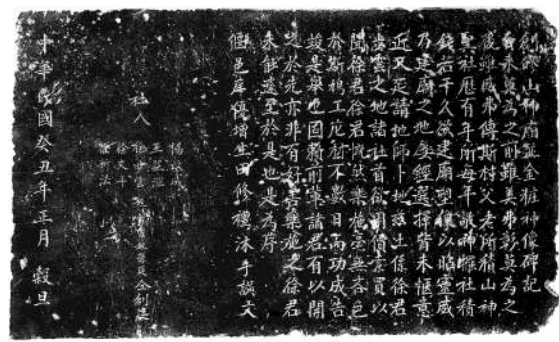 創修山神廟並金粧神像碑記
自來莫為之前雖美弗彰莫為之
後雖盛弗傳斯村父老所積山神
聖社歷有年所每年敬神燦社積
錢若干久欲建廟塑像以昭靈威
乃建廟之地屡經選择皆未愜意
近又延請地師卜地茲土係徐君
步雲之地諸社首欲用價索買以
聞徐君徐君慨然樂施毫無吝色
於斯鳩工庀材不數日而功成告
竣是舉也固賴前輩諸君有以開
之於先亦非有好善樂施之徐君
永能遂至於是也是為序
邑庠優增生田修穗沐手謀文
社人
楊
王
徐步雲 仝創建
徐文
徐 法
中華民國癸丑年正月 穀旦